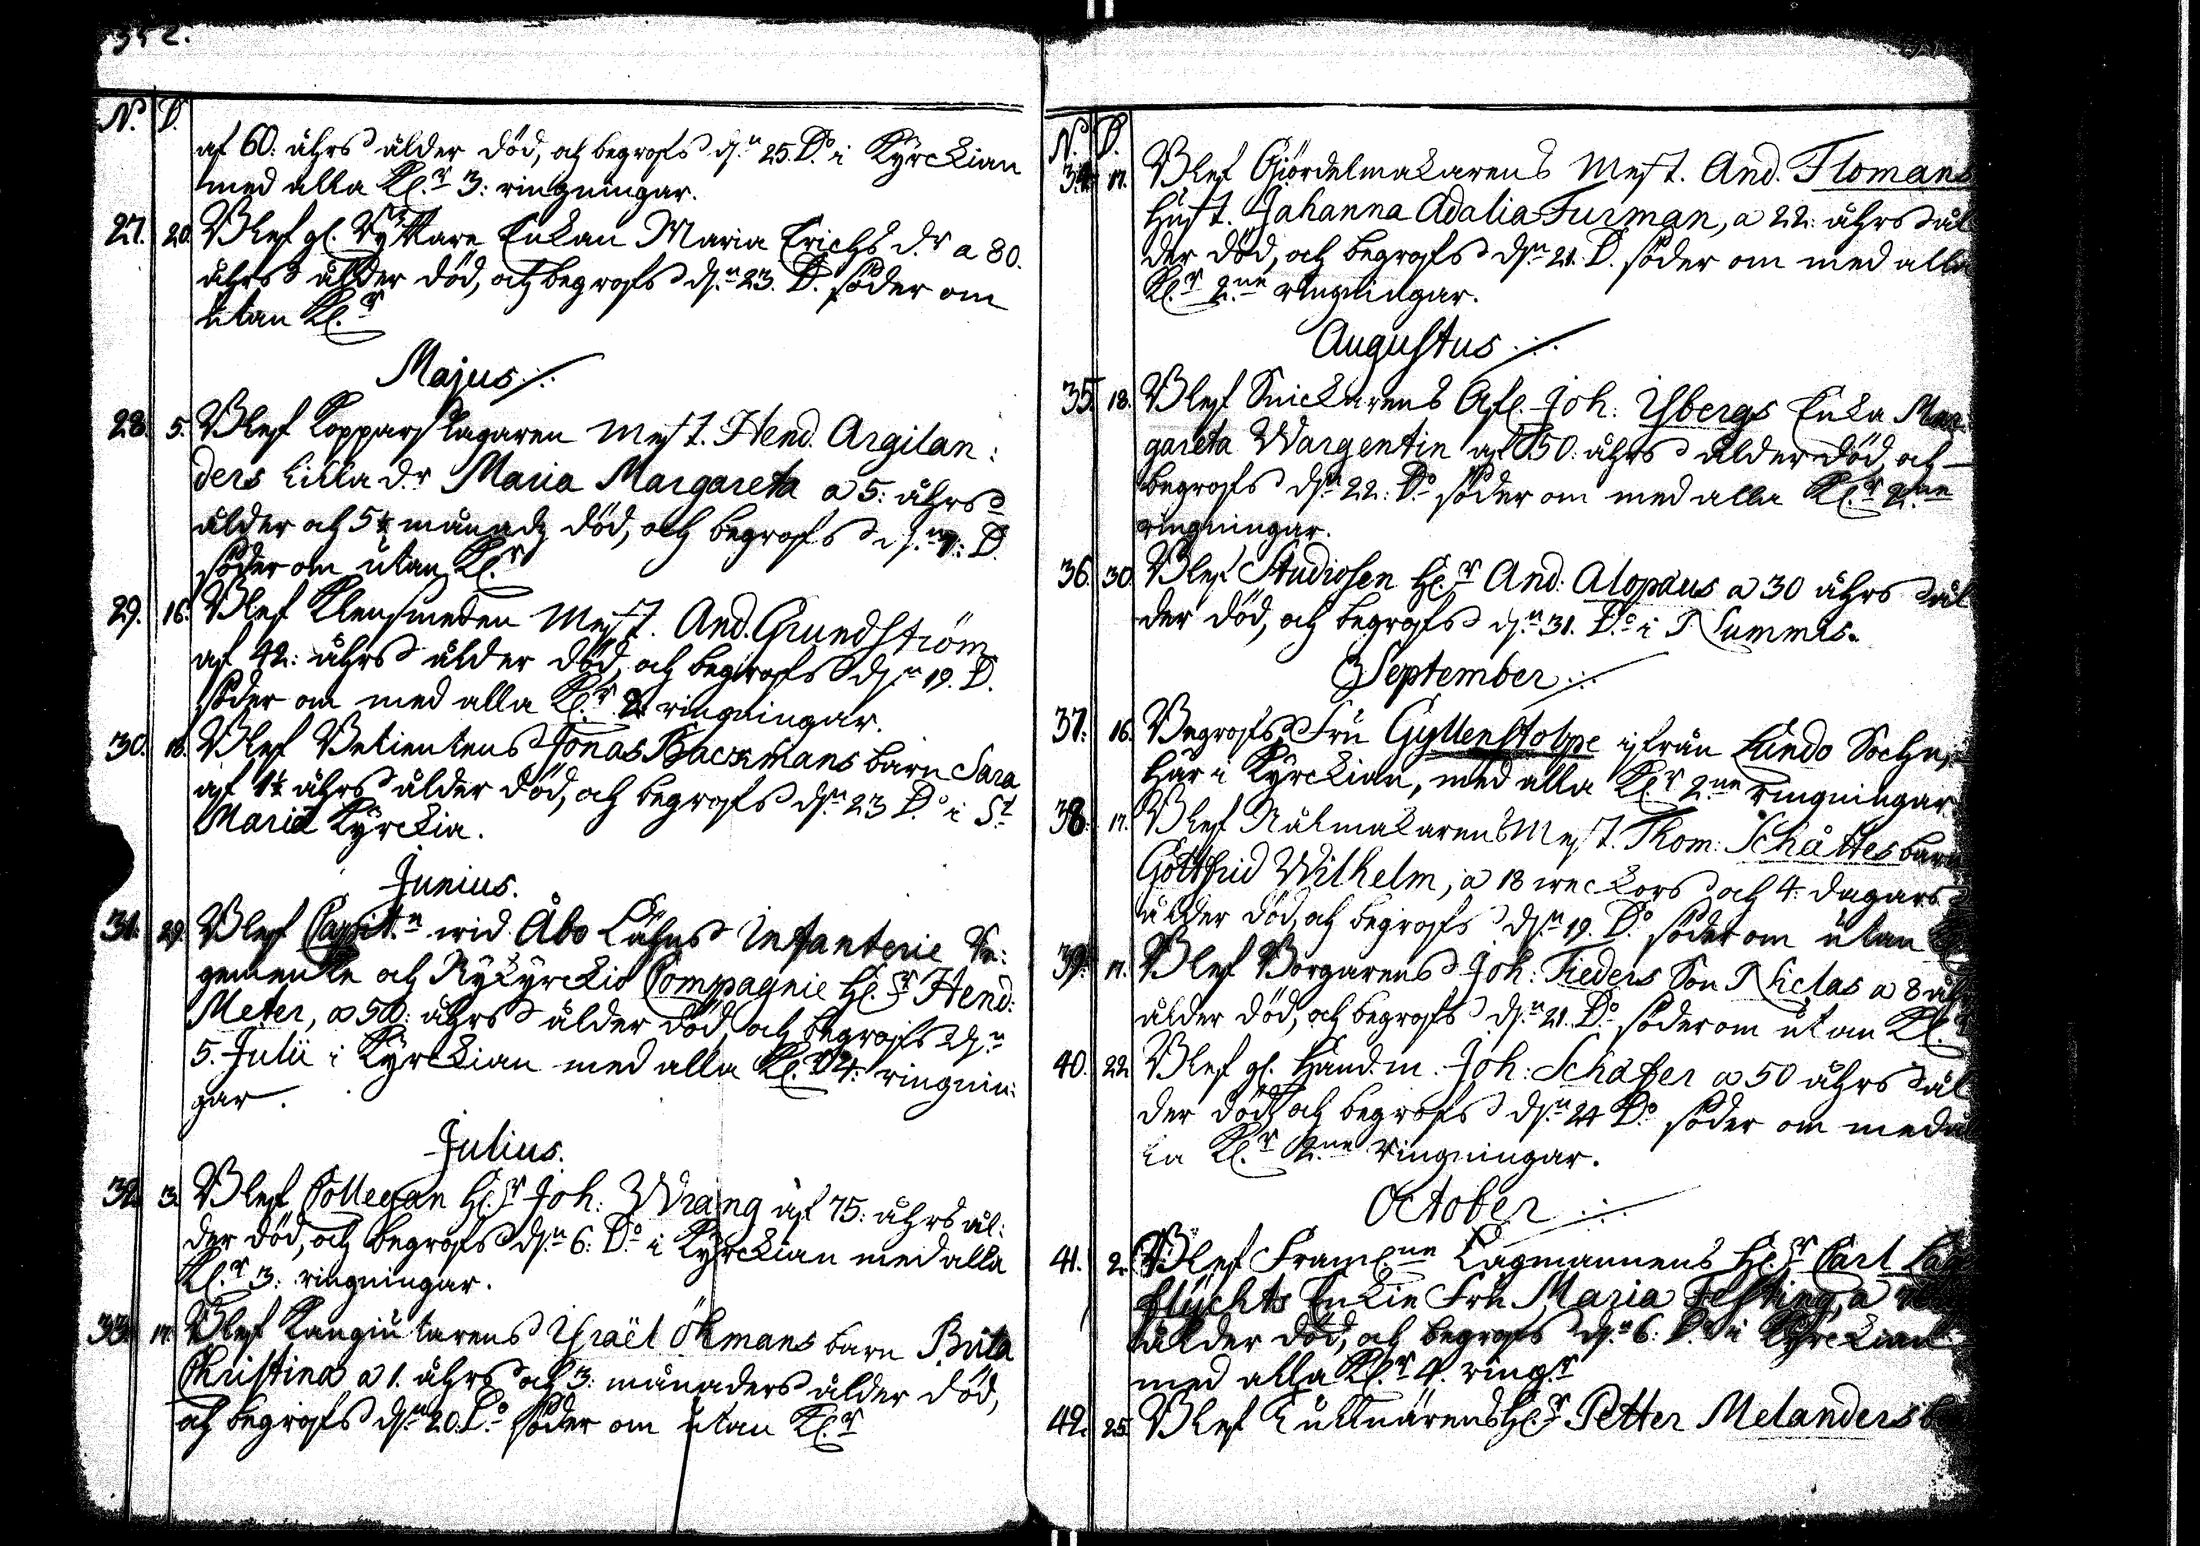 352.
N. D.
af 60. åhrs ålder död, och begrofs d. 25. Do i Kyrckian
med alla Kl.r 3: ringningar.
27. 20. Blef gl. Ryttare Enkan Maria Erichs dr a 80.
åhrs ålder död, och begrofs d.n 23. D. söder om
utan Kl.r
Majus
28. 5. Blef Kopparslagaren Mest. Hend. Argilan:
ders lilla dr Maria Margareta a 5: åhrs
ålder och 5½ månad död, och begrofs d.n 7: D.
söder om utan Kl.r
29. 16. Blef Klensmeden Mest. And. Grundström
af 42: åhrs ålder död, och begrofs d.n 19. D.
söder om med alla Kl.r 2 ringningar.
30. 18. Blef Betientens Jonas Backmans barn Sara
af 1½ åhrs ålder död, och begrofs d.n 23 Do i St
Mariæ Kyrckia.
Junius.
31. 29. Blef Capit.n wid Åbo Lähns Infanterie Re:
gemente och Nykyrckio Compagnie H.r Hend:
Meter, a 50: åhrs ålder död, och begrofs d.n
5. Julii i Kyrckian med alla Kl.r 4: ringnin:
gar.
Julius.
32. 3. Blef Collegan H.r Joh: Wrang af 75: åhrs ål:
der död, och begrofs d.n 6: Do i Kyrckian med alla
Kl.r 3: ringningar.
33. 17. Blef Kangiutarens Israël Ökmans barn Brita
Christina a 1. åhrs och 3: månaders ålder död,
och begrofs d.n 20. Do söder om utan Kl.r
N. D.
34. 17. Blef Giördelmakarens Mest. And. Flomans
hust. Johanna Adalia Furman, a 22: åhrs ål
der död, och begrofs d.n 21. D. söder om med alla
Kl.r 2.ne ringningar.
Augustus
35. 18. Blef Snickarens Afl. Joh: Ysbergs Enka Mar
gareta Wargentin af 50: åhrs ålder död, och
begrofs d.n 22: Do söder om med alla Kl.r 2.ne
ringningar.
36. 30. Blef Studiosen H.r And: Alopæus a 30 åhrs ål
der död, och begrofs d.n 31. Do i Nummis.
September
37. 16. Begrofs Fru Gyllenstolpe ifrån Lundo Sochn,
här i Kyrckian, med alla Kl.r 2.ne ringningar
38. 17. Blef Nålmakarens Mest. Thom: Schåttes barn
Gottfrid Wilhelm, a 18 weckors och 4. dagars
ålder död, och begrofs d.n 19. Do söder om utan
39. 17. Blef Borgarens Joh: Tieders Son Niclas a 8 åhr
ålder död, och begrofs d.n 21. Do söder om utan Kl.r
40. 22. Blef gl. Handm. Joh: Schäfer a 50 åhrs ål
der död, och begrofs d.n 24 Do söder om med al
la Kl.r 2.ne ringningar.
October
41. 2. Blef Framl.ne Lagmannens H.r Carl
flychts Enkie Fru Maria Festing, a
ålder död, och begrofs d.n 6: D. i Kyrckian
med alla Kl.r 4. ring.r
42. 25. Blef Tullnärens H.r Petter Melanders